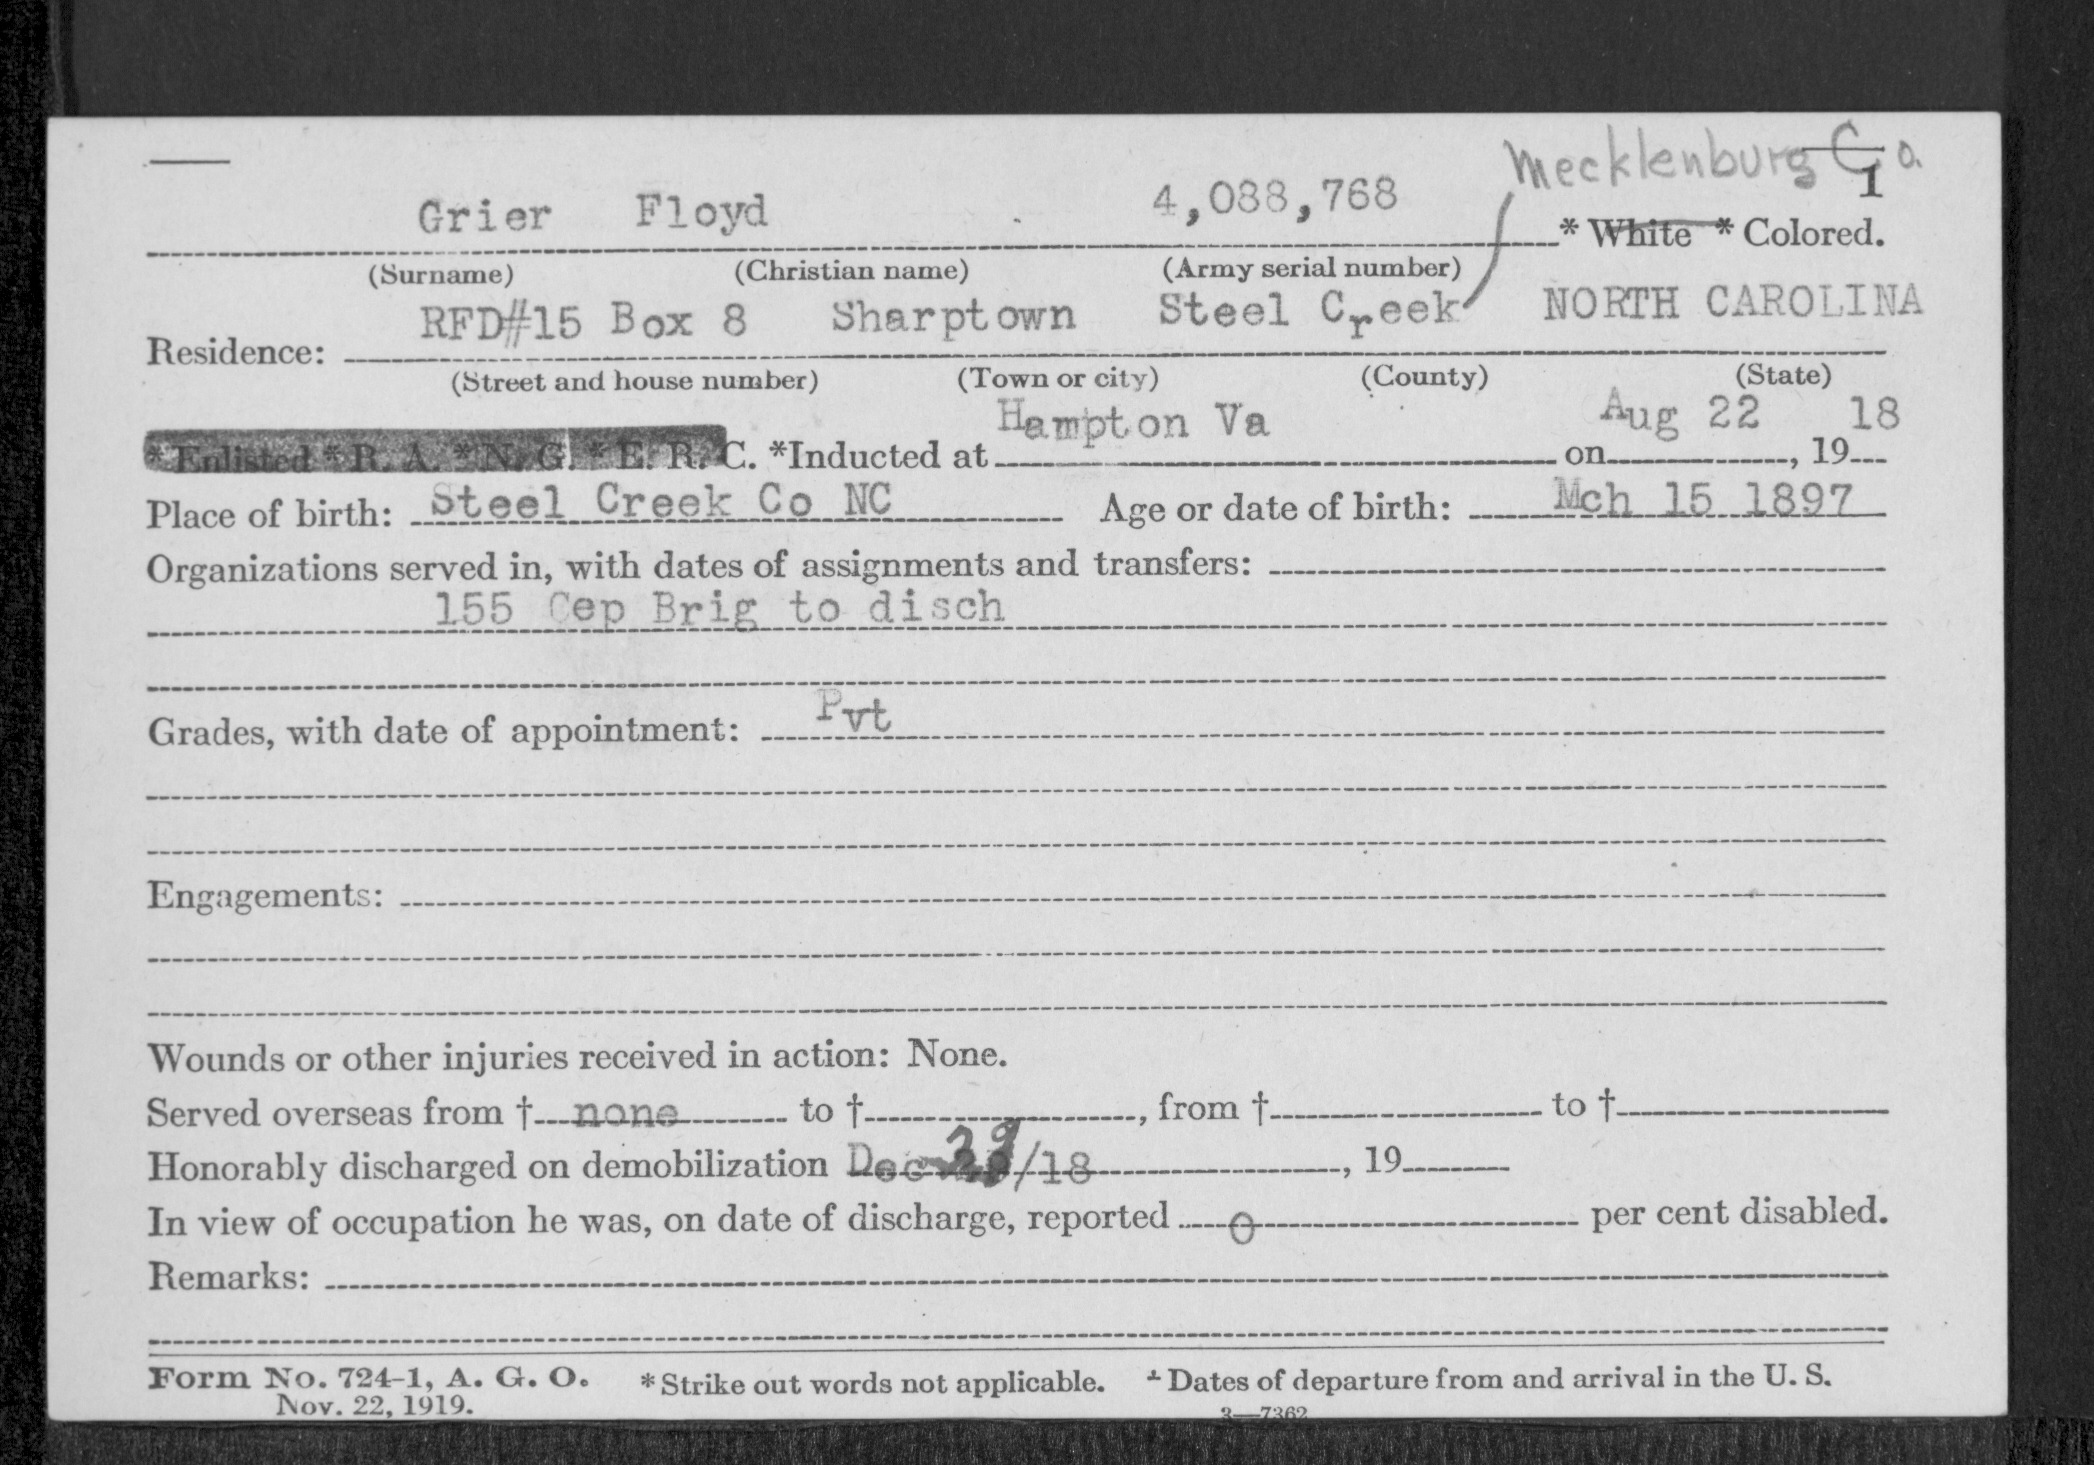 Mecklenburg Co.
1
Grier Floyd 4,088,768 * White * Colored.
(Surname) (Christian name) (Army serial number)
RFD#15 Box 8 Sharptown Steel Creek NORTH CAROLINA
Residence:
(Street and house number) (Town or city) (County) (State)
Hampton Va Aug 22 18
* Enlisted * R. A. * N. G. * E. R. C. *Inducted at on , 19
Place of birth: Steel Creek Co NC Age or date of birth: Mch 15 1897
Organizations served in, with dates of assignments and transfers:
155 Cep Brig to disch
Grades, with date of appointment: Pvt
Engagements:
Wounds or other injuries received in action: None.
Served overseas from † none to † , from † to †
Honorably discharged on demobilization Dec /18 , 19
In view of occupation he was, on date of discharge, reported 0 per cent disabled.
Remarks:
Form No. 724-1, A. G. O. * Strike out words not applicable. † Dates of departure from and arrival in the U. S.
Nov. 22, 1919. 3—7362